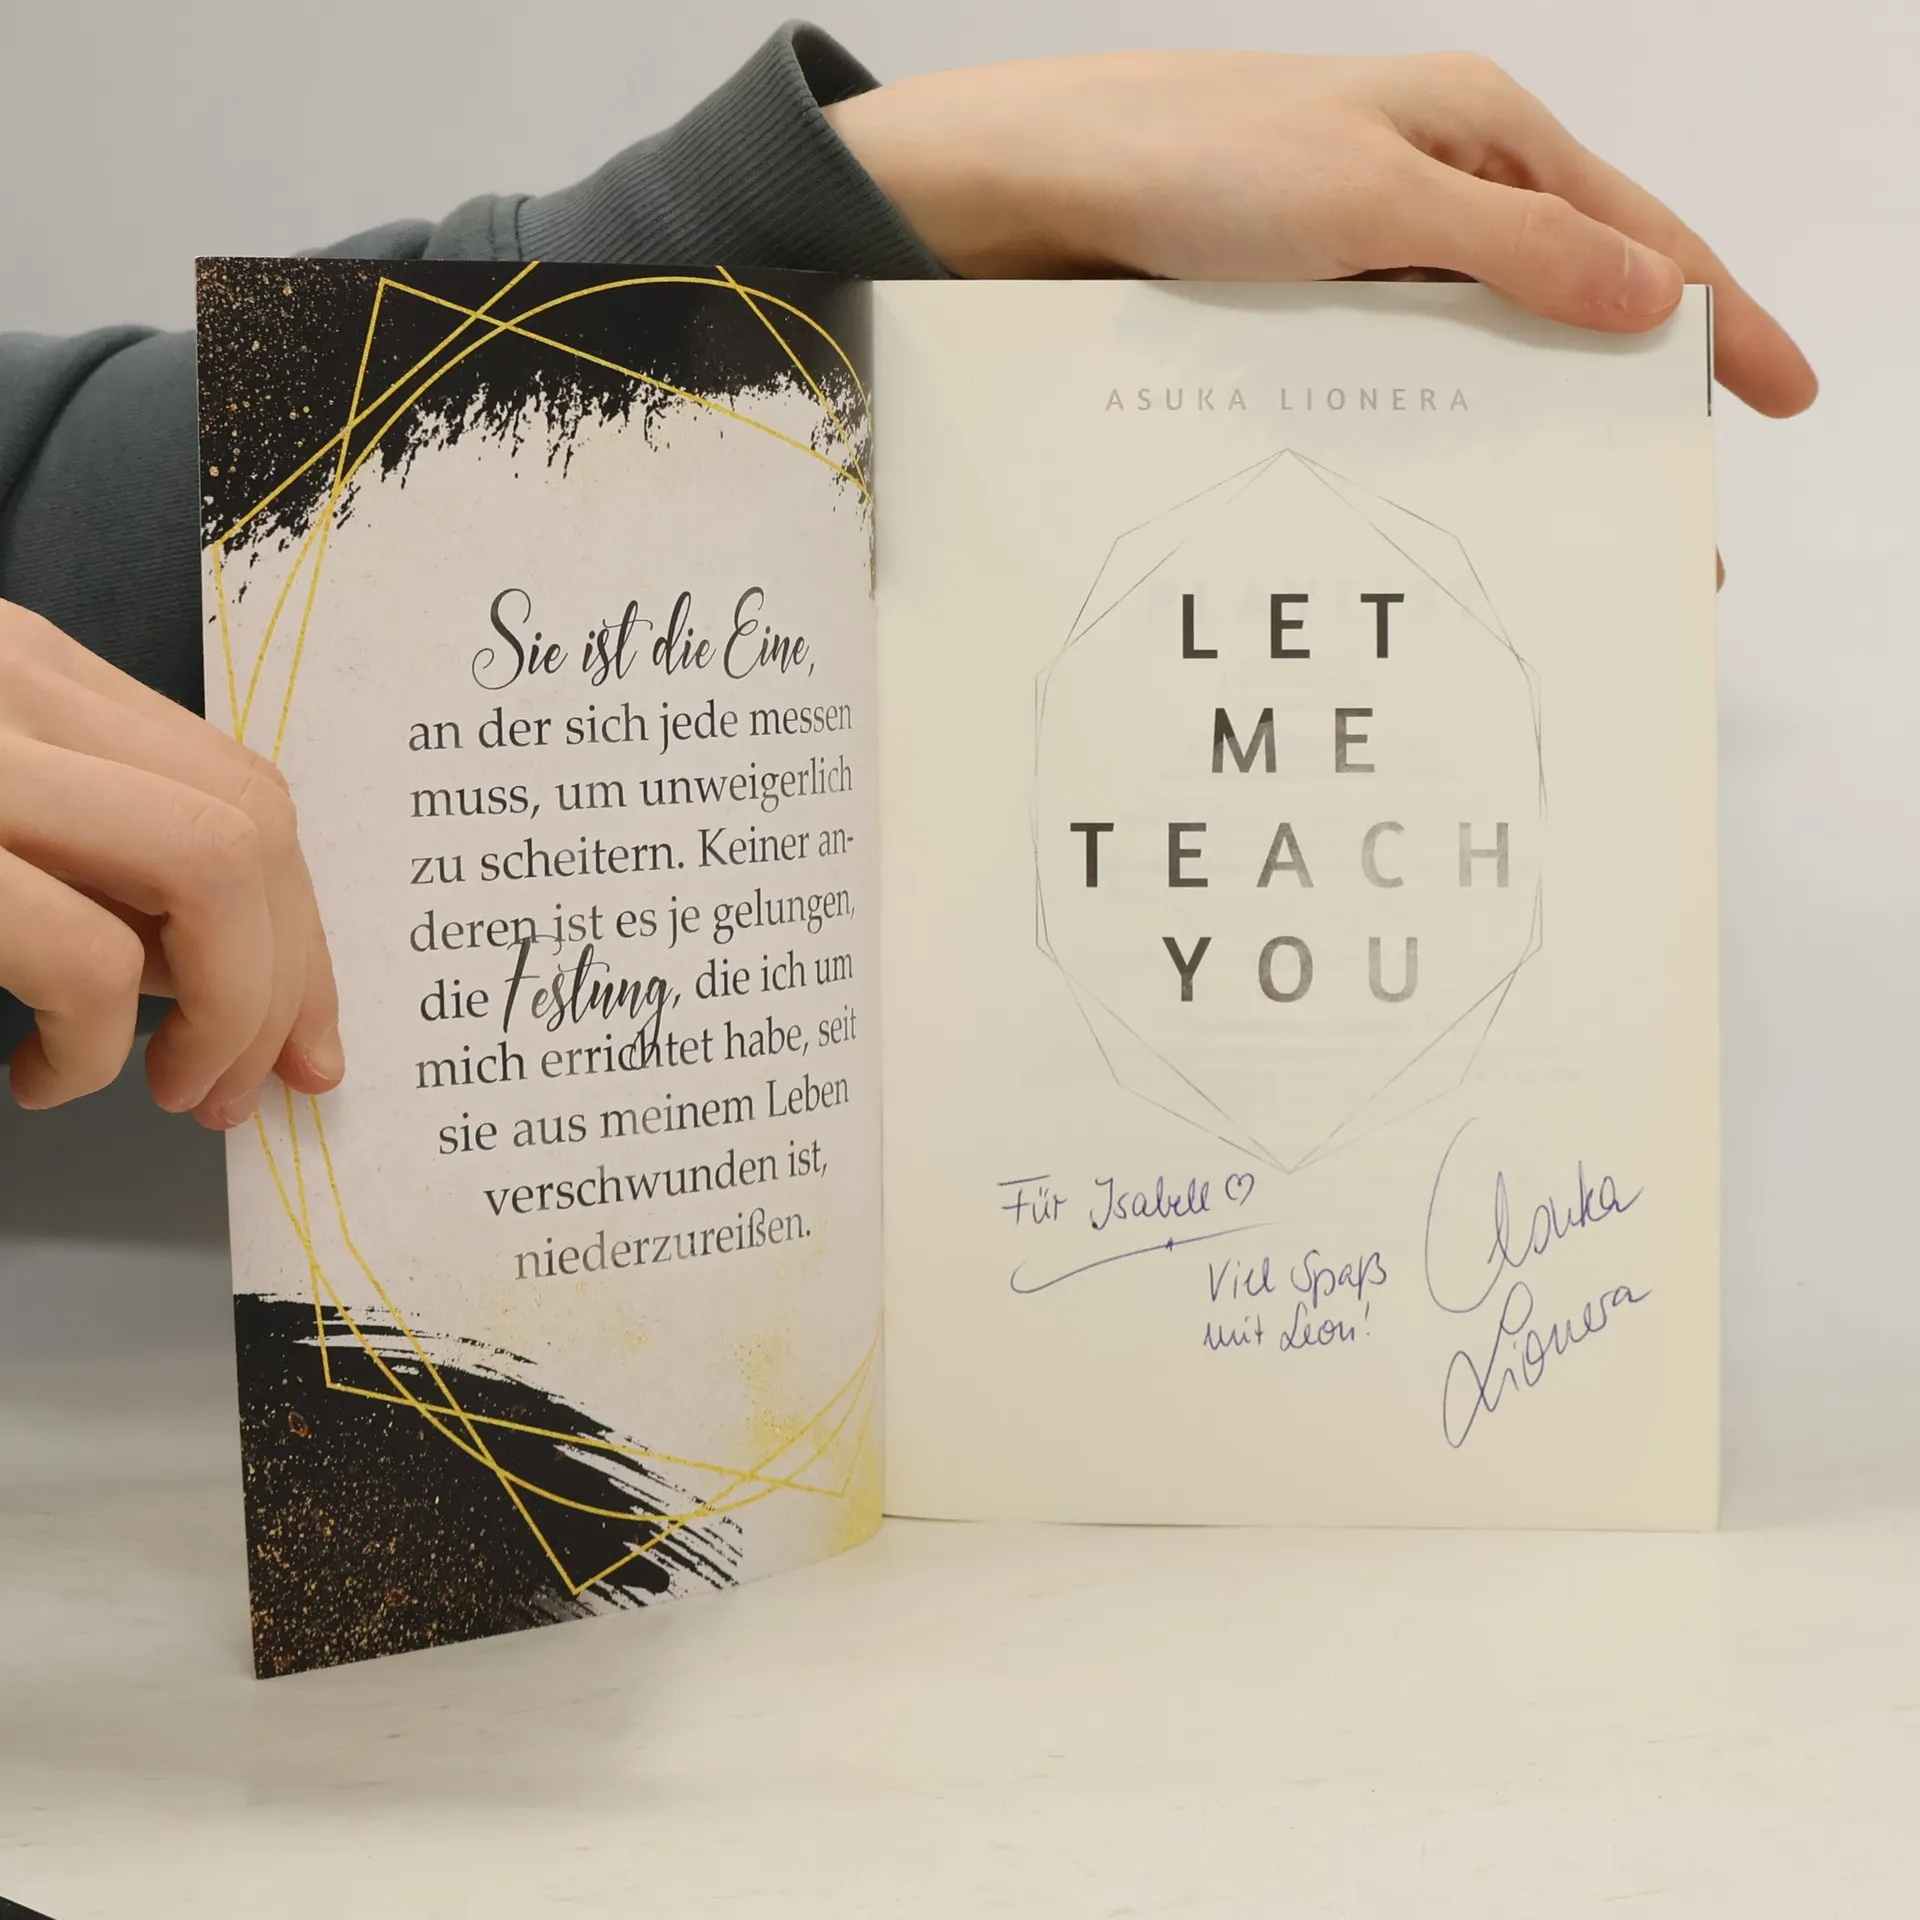 Sie ist die Eine,
an der sich jede messen
muss, um unweigerlich
zu scheitern. Keiner an-
deren ist es je gelungen,
die Festung, die ich um
mich errichtet habe, seit
sie aus meinem Leben
verschwunden ist,
niederzureißen.
ASUKA LIONERA
LET
ME
TEACH
YOU
Für Isabell ♡
Viel Spaß
mit Leon!
Asuka
Lionera